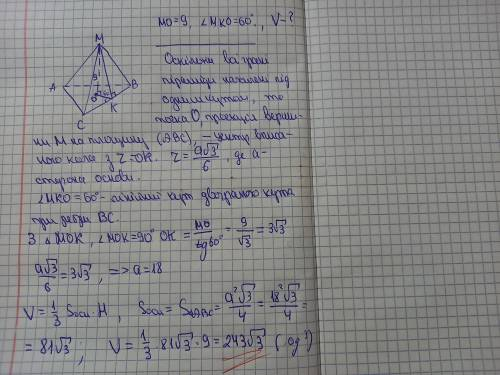 MO=9, ∠MKO=60°, V-?
M
Оскільки всі грані
A
9
B
піраміди нахилені під
O
K
одним кутом, то
C
точка O, проекція верши-
ни M на площину (ABC), – центр вписа-
ного кола з r=OK. r=a√3/6, де a-
сторона основи.
∠MKO=60°- лінійний кут двогранного кута
при ребрі BC.
З △MOK, ∠MOK=90° OK=MO/tg60°=9/√3=3√3
a√3/6=3√3, => a=18
V=1/3 Sосн·H, Sосн=S△ABC=a²√3/4=18²√3/4=
=81√3; V=1/3·81√3·9=243√3 (од³)